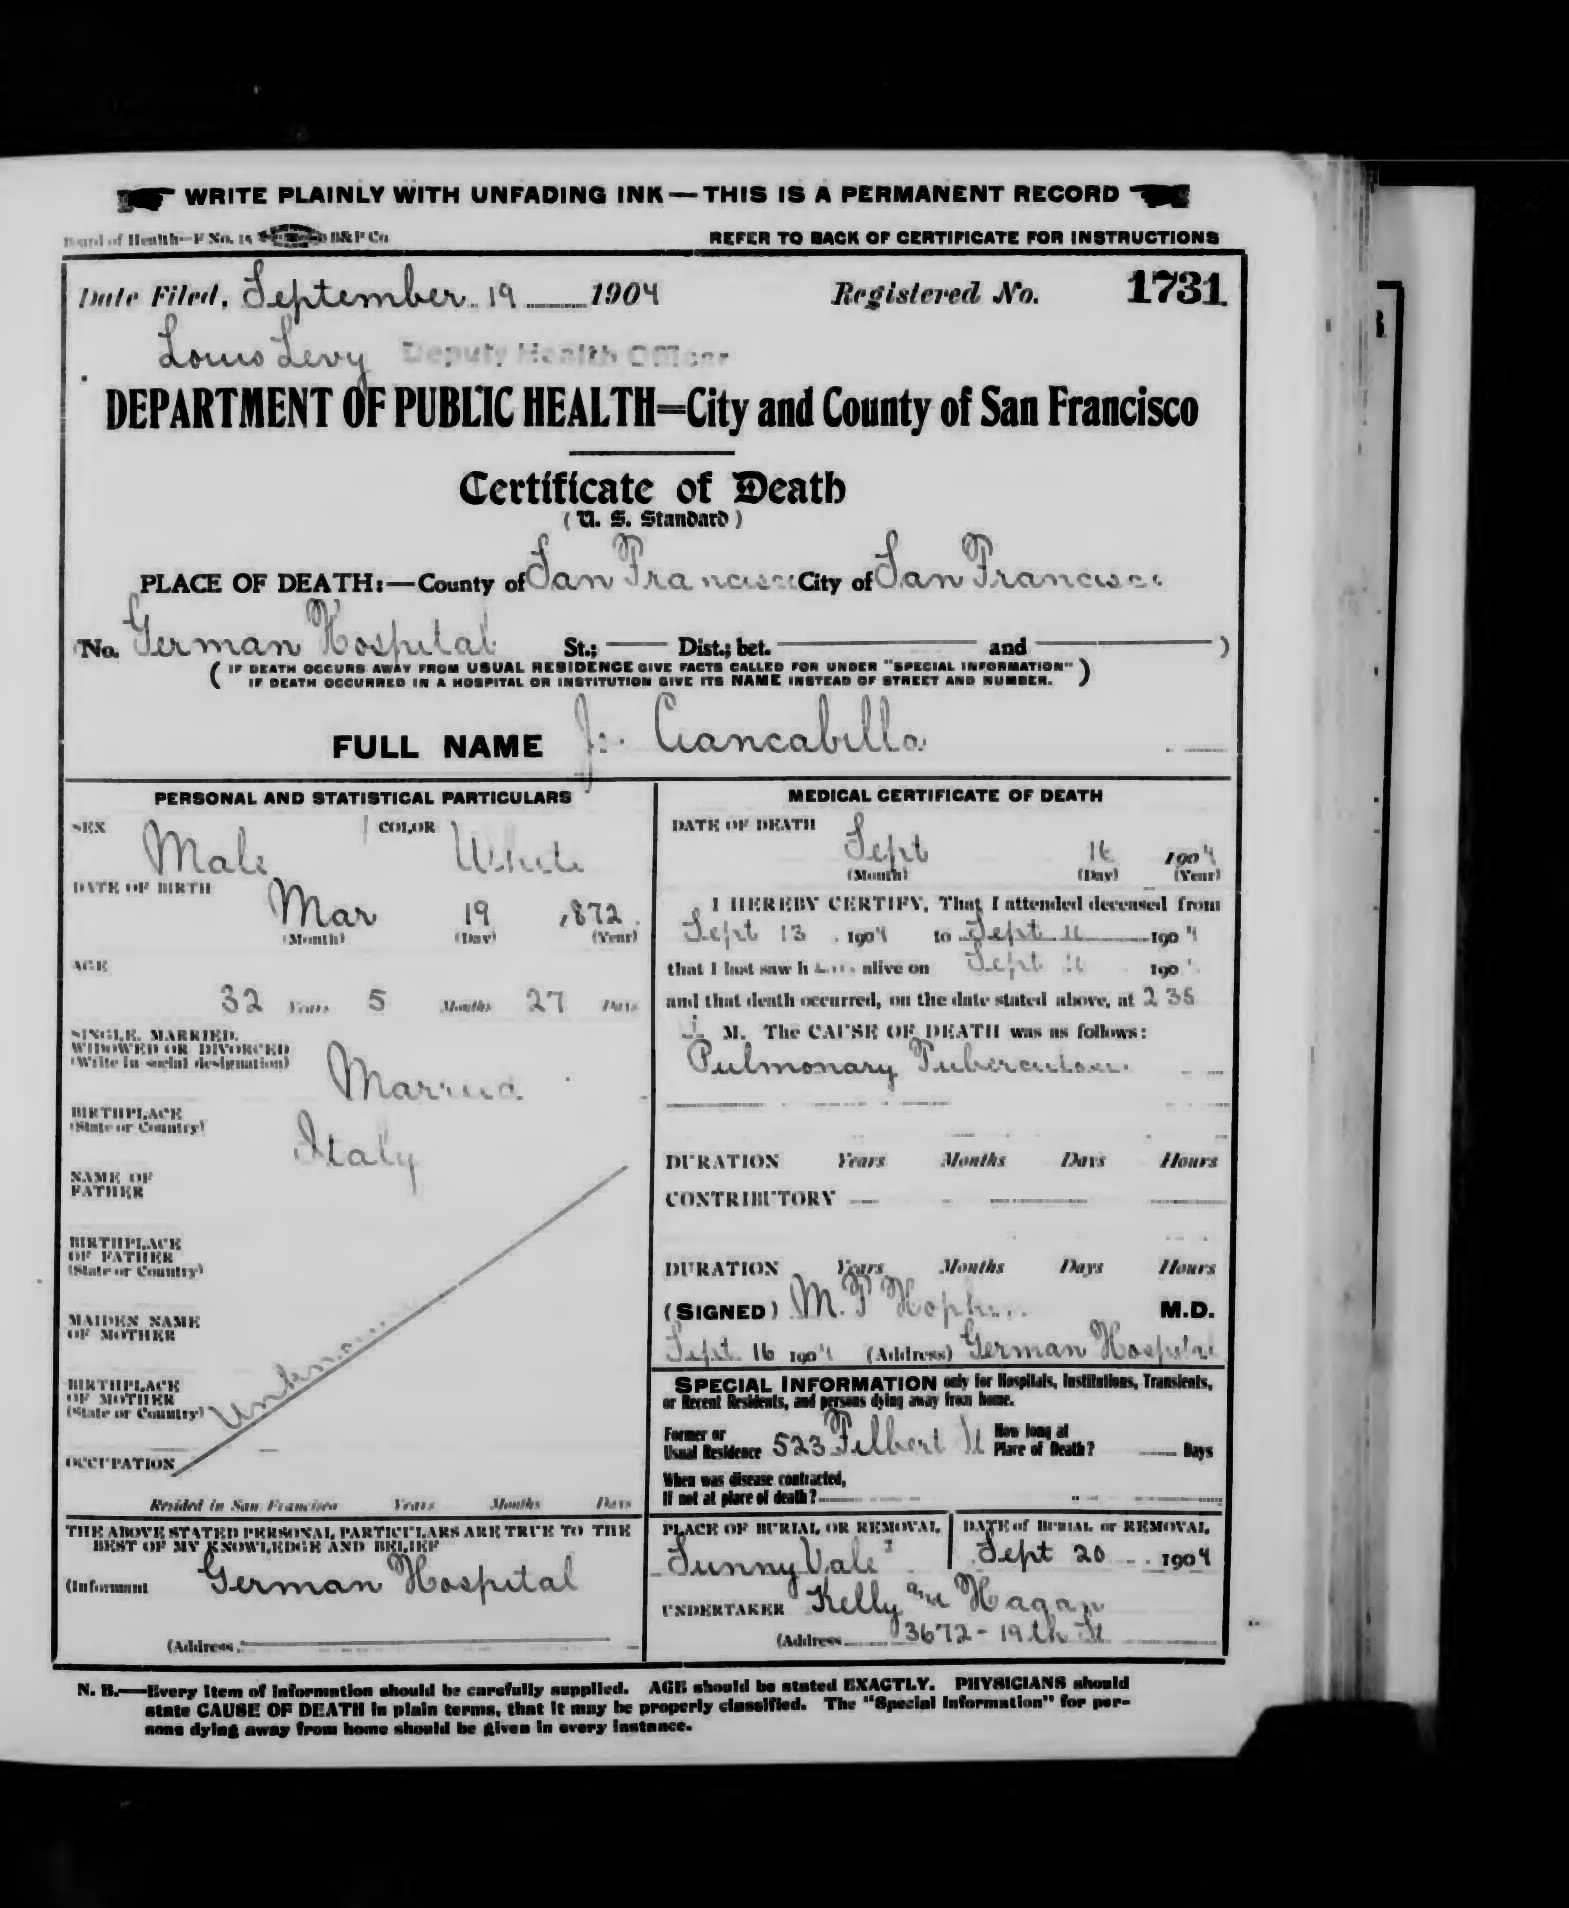 WRITE PLAINLY WITH UNFADING INK — THIS IS A PERMANENT RECORD
Board of Health—F No. 15 B&P Co
REFER TO BACK OF CERTIFICATE FOR INSTRUCTIONS
Date Filed, September 19 1904 Registered No. 1731
Louis Levy Deputy Health Officer
DEPARTMENT OF PUBLIC HEALTH=City and County of San Francisco
Certificate of Death
(U. S. Standard)
PLACE OF DEATH:—County of San Francisco City of San Francisco
No. German Hospital St.; Dist.; bet. and )
( IF DEATH OCCURS AWAY FROM USUAL RESIDENCE GIVE FACTS CALLED FOR UNDER "SPECIAL INFORMATION" )
IF DEATH OCCURRED IN A HOSPITAL OR INSTITUTION GIVE ITS NAME INSTEAD OF STREET AND NUMBER.
FULL NAME J. Ciancabilla
PERSONAL AND STATISTICAL PARTICULARS
SEX Male COLOR White
DATE OF BIRTH
Mar 19 1872
(Month) (Day) (Year)
AGE
32 Years 5 Months 27 Days
SINGLE, MARRIED,
WIDOWED OR DIVORCED
(Write in social designation) Married
BIRTHPLACE
(State or Country) Italy
NAME OF
FATHER
BIRTHPLACE
OF FATHER
(State or Country)
MAIDEN NAME
OF MOTHER
BIRTHPLACE
OF MOTHER
(State or Country) Unknown
OCCUPATION
Resided in San Francisco Years Months Days
THE ABOVE STATED PERSONAL PARTICULARS ARE TRUE TO THE
BEST OF MY KNOWLEDGE AND BELIEF
(Informant German Hospital
(Address
MEDICAL CERTIFICATE OF DEATH
DATE OF DEATH
Sept 16 1904
(Month) (Day) (Year)
I HEREBY CERTIFY, That I attended deceased from
Sept 13 1904 to Sept 16 1904
that I last saw h alive on Sept 16 190
and that death occurred, on the date stated above, at 2 35
M. The CAUSE OF DEATH was as follows:
Pulmonary Tuberculosis
DURATION Years Months Days Hours
CONTRIBUTORY
DURATION Years Months Days Hours
(SIGNED) M. P. M.D.
Sept. 16 1904 (Address) German Hospital
SPECIAL INFORMATION only for Hospitals, Institutions, Transients,
or Recent Residents, and persons dying away from home.
Former or
Usual Residence 523 Filbert St How long at
Place of Death? Days
When was disease contracted,
If not at place of death?
PLACE OF BURIAL OR REMOVAL
Sunny Vale
DATE of BURIAL or REMOVAL
Sept 20 1904
UNDERTAKER Kelly and Hagan
(Address 3672 - 19th St
N. B.—Every item of information should be carefully supplied. AGE should be stated EXACTLY. PHYSICIANS should
state CAUSE OF DEATH in plain terms, that it may be properly classified. The "Special Information" for per-
sons dying away from home should be given in every instance.